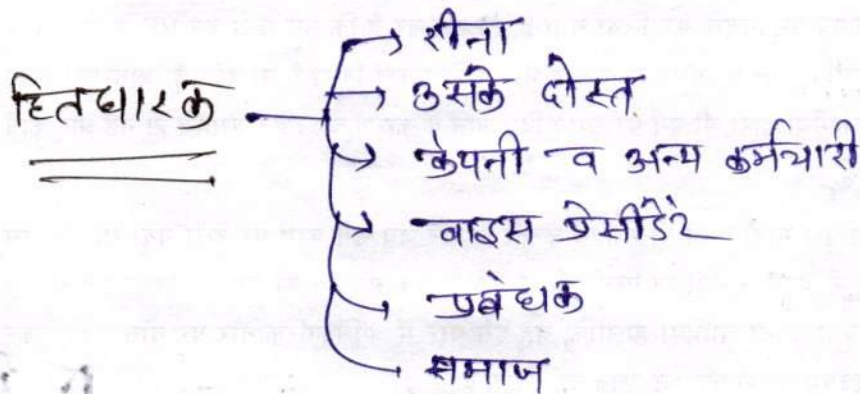 हितधारक
→ रीना
→ उसके दोस्त
→ कंपनी व अन्य कर्मचारी
→ वाइस प्रेसीडेंट
→ प्रबंधक
→ समाज